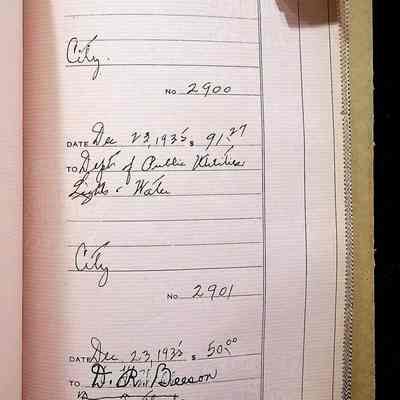 City.
No 2900
DATE Dec 23, 1935 $ 91.27
TO Dept of Public Utilities
Lights & Water
City
No 2901
DATE Dec 23, 1935 $ 50.00
TO D. R. Beeson